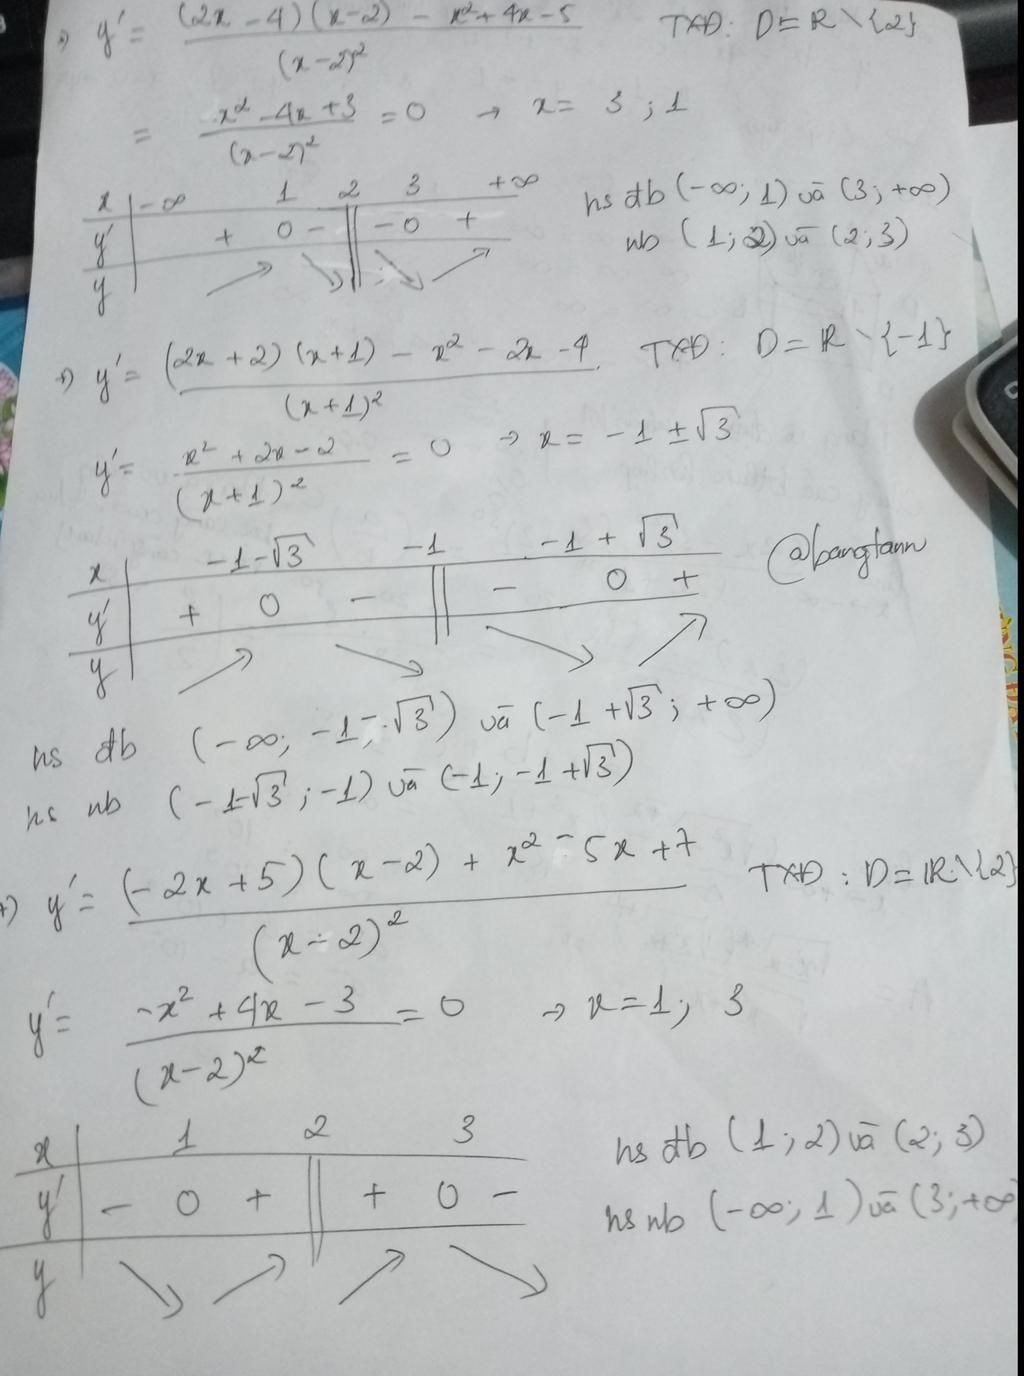 +) y' = ((2x - 4)(x-2) - x² + 4x - 5)/(x-2)² TXĐ: D = ℝ \ {2}
= (x² - 4x + 3)/(x-2)² = 0 → x = 3 ; 1
x | -∞ 1 2 3 +∞
y' | + 0 - || - 0 +
y | ↗ ↘ || ↘ ↗
hs đb (-∞; 1) và (3; +∞)
nb (1; 2) và (2; 3)
+) y' = ((2x + 2)(x+1) - x² - 2x - 4)/(x+1)² TXĐ: D = ℝ \ {-1}
y' = (x² + 2x - 2)/(x+1)² = 0 → x = -1 ± √3
x | -1-√3 -1 -1 + √3
y' | + 0 - || - 0 +
y | ↗ ↘ ↘ ↗
@bangtann
hs đb (-∞; -1-√3) và (-1+√3; +∞)
hs nb (-1-√3; -1) và (-1; -1+√3)
+) y' = ((-2x + 5)(x-2) + x² - 5x + 7)/(x-2)² TXĐ: D = ℝ \ {2}
y' = (-x² + 4x - 3)/(x-2)² = 0 → x = 1; 3
x | 1 2 3
y' | - 0 + || + 0 -
y | ↘ ↗ || ↗ ↘
hs đb (1; 2) và (2; 3)
hs nb (-∞; 1) và (3; +∞